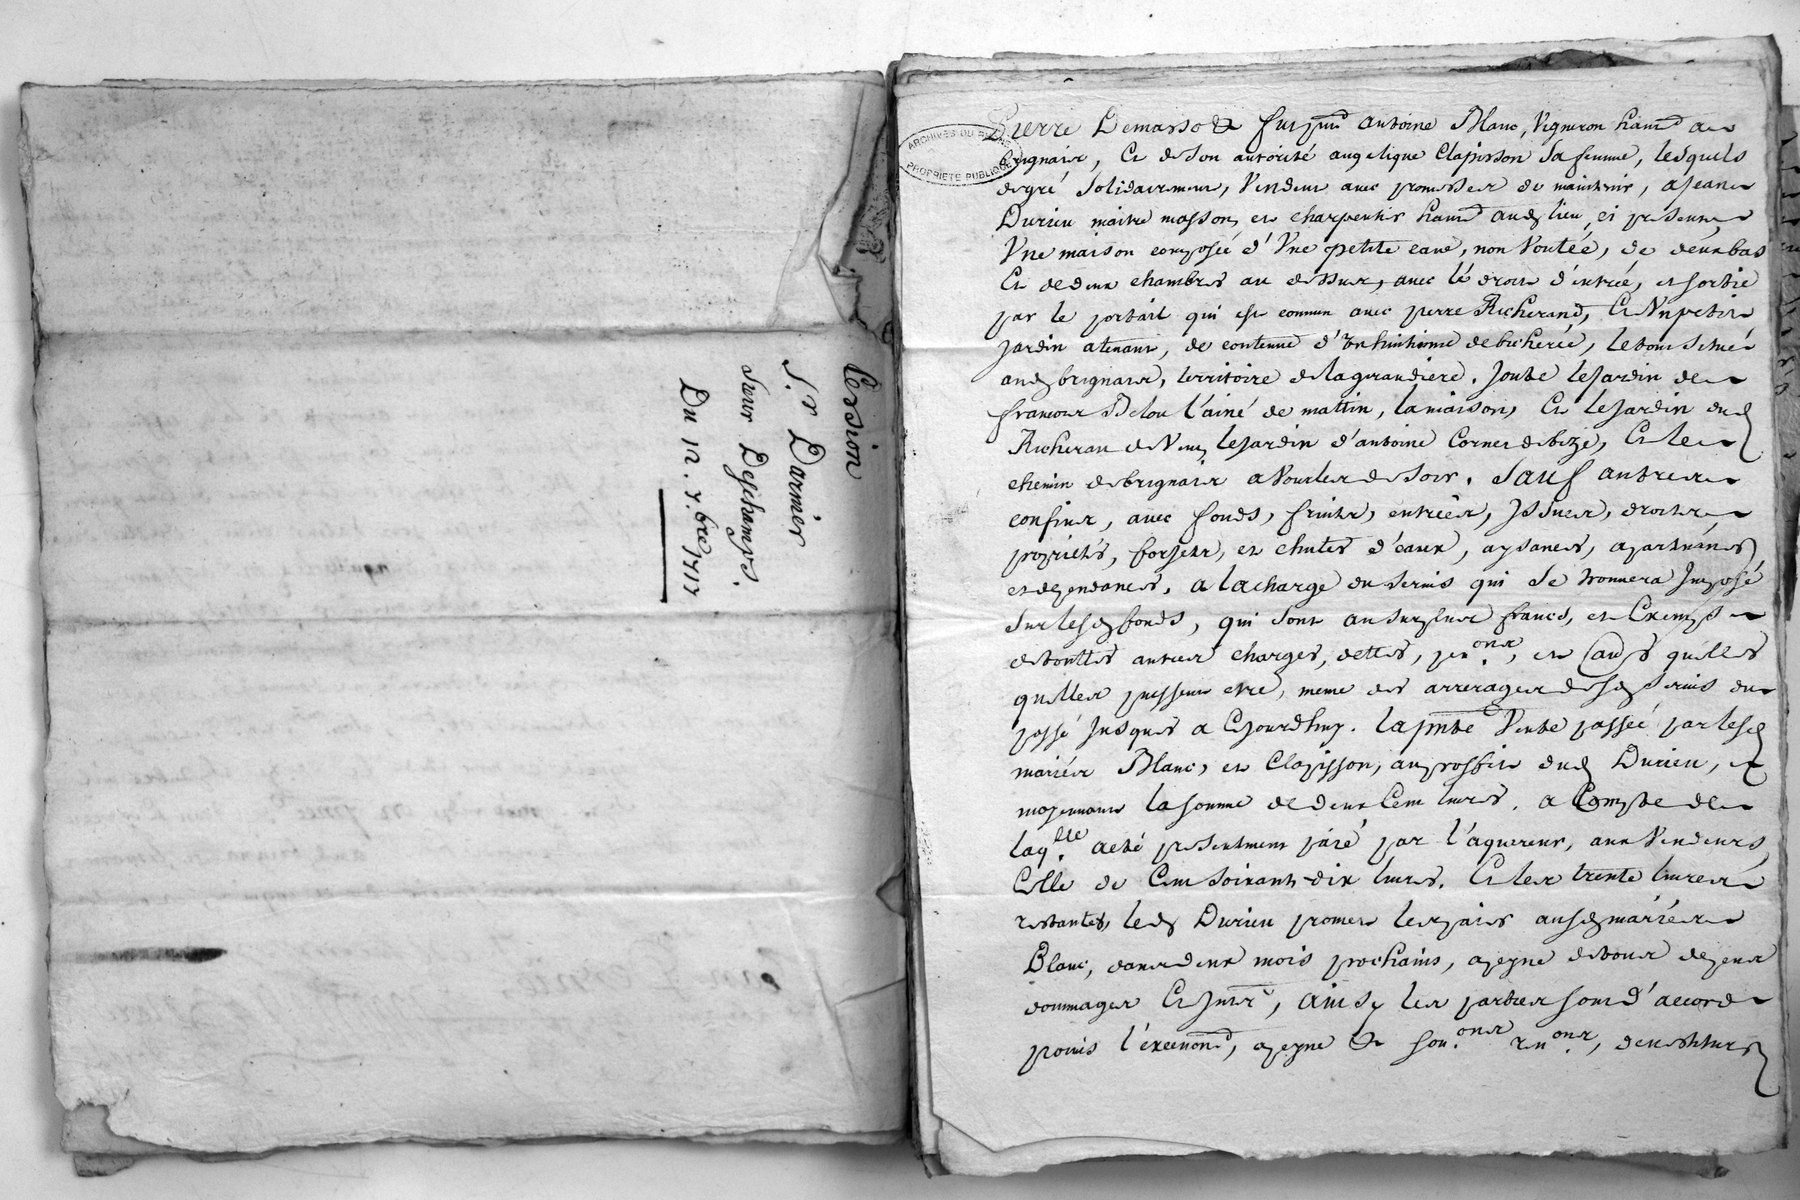 Cession
S.r Darnier
Sieur Deschamps.
Du 12. 7.bre 1717
ARCHIVES DU RHONE
PROPRIETE PUBLIQUE
Pierre Demarso & fut pnt antoine Blanc, Vigneron habt a
brignais, Et de son autorité angelique Clapisson Sa femme, lesquels
degré Solidairement, Vendent avec promesses de maintenir, a Jean
Durieu maitre masson, et charpentier habt aud lieu, ci present
Une maison composée d'Une petite cave, non Voutéé, de deux bas
Et de deux chambres au dessus, avec lé droit d'entréé, et sortie
par le portail qui est commun avec pierre Richerand, Et Un petit
Jardin atenant, de contenue d' de bicheréé, le tout Situé
aud brignais, territoire de la girandiere. Joute le Jardin de
francois Belou l'ainé de mattin, la maison, Et le Jardin dud
Richeran de Vent, le Jardin d'antoine Cornet de bize, Et le
chemin de brignais a Vourles de Soir. Sauf autres
confins, avec fonds, fruits, entréés, Issues, droits
proprietés, forjets, et chutes d'eaux, aysances, apartenances
et dependances. a la charge du Servis qui Se trouvera Imposé
Sur lesd fonds, qui Sont au Surplus francs, et Exempts
de touttes autres charges, dettes, pen.ons, et quelles
quelles puissent etre, meme des arrerages desd Servis du
passé Jusques a Cejourdhuy. la pnte Vente passéé par lesd
mariés Blanc, et Clapisson, au proffit dud Durieu, et
moyennant la Somme de deux Cent livres. a Compte de
laq.lle a eté presentement paié par l'aquereur, aux Vendeurs
Celle de Cent Soixante dix livres. Et les trente livres
restantes, led Durieu promet les paier ausd mariés
Blanc, dans deux mois prochains, a peyne de tous depens
dommages Et Intts, ainsy les parties Sont d'accord
pouis l'execuond, a peyne & Sou.ons ren.ons, devestitures